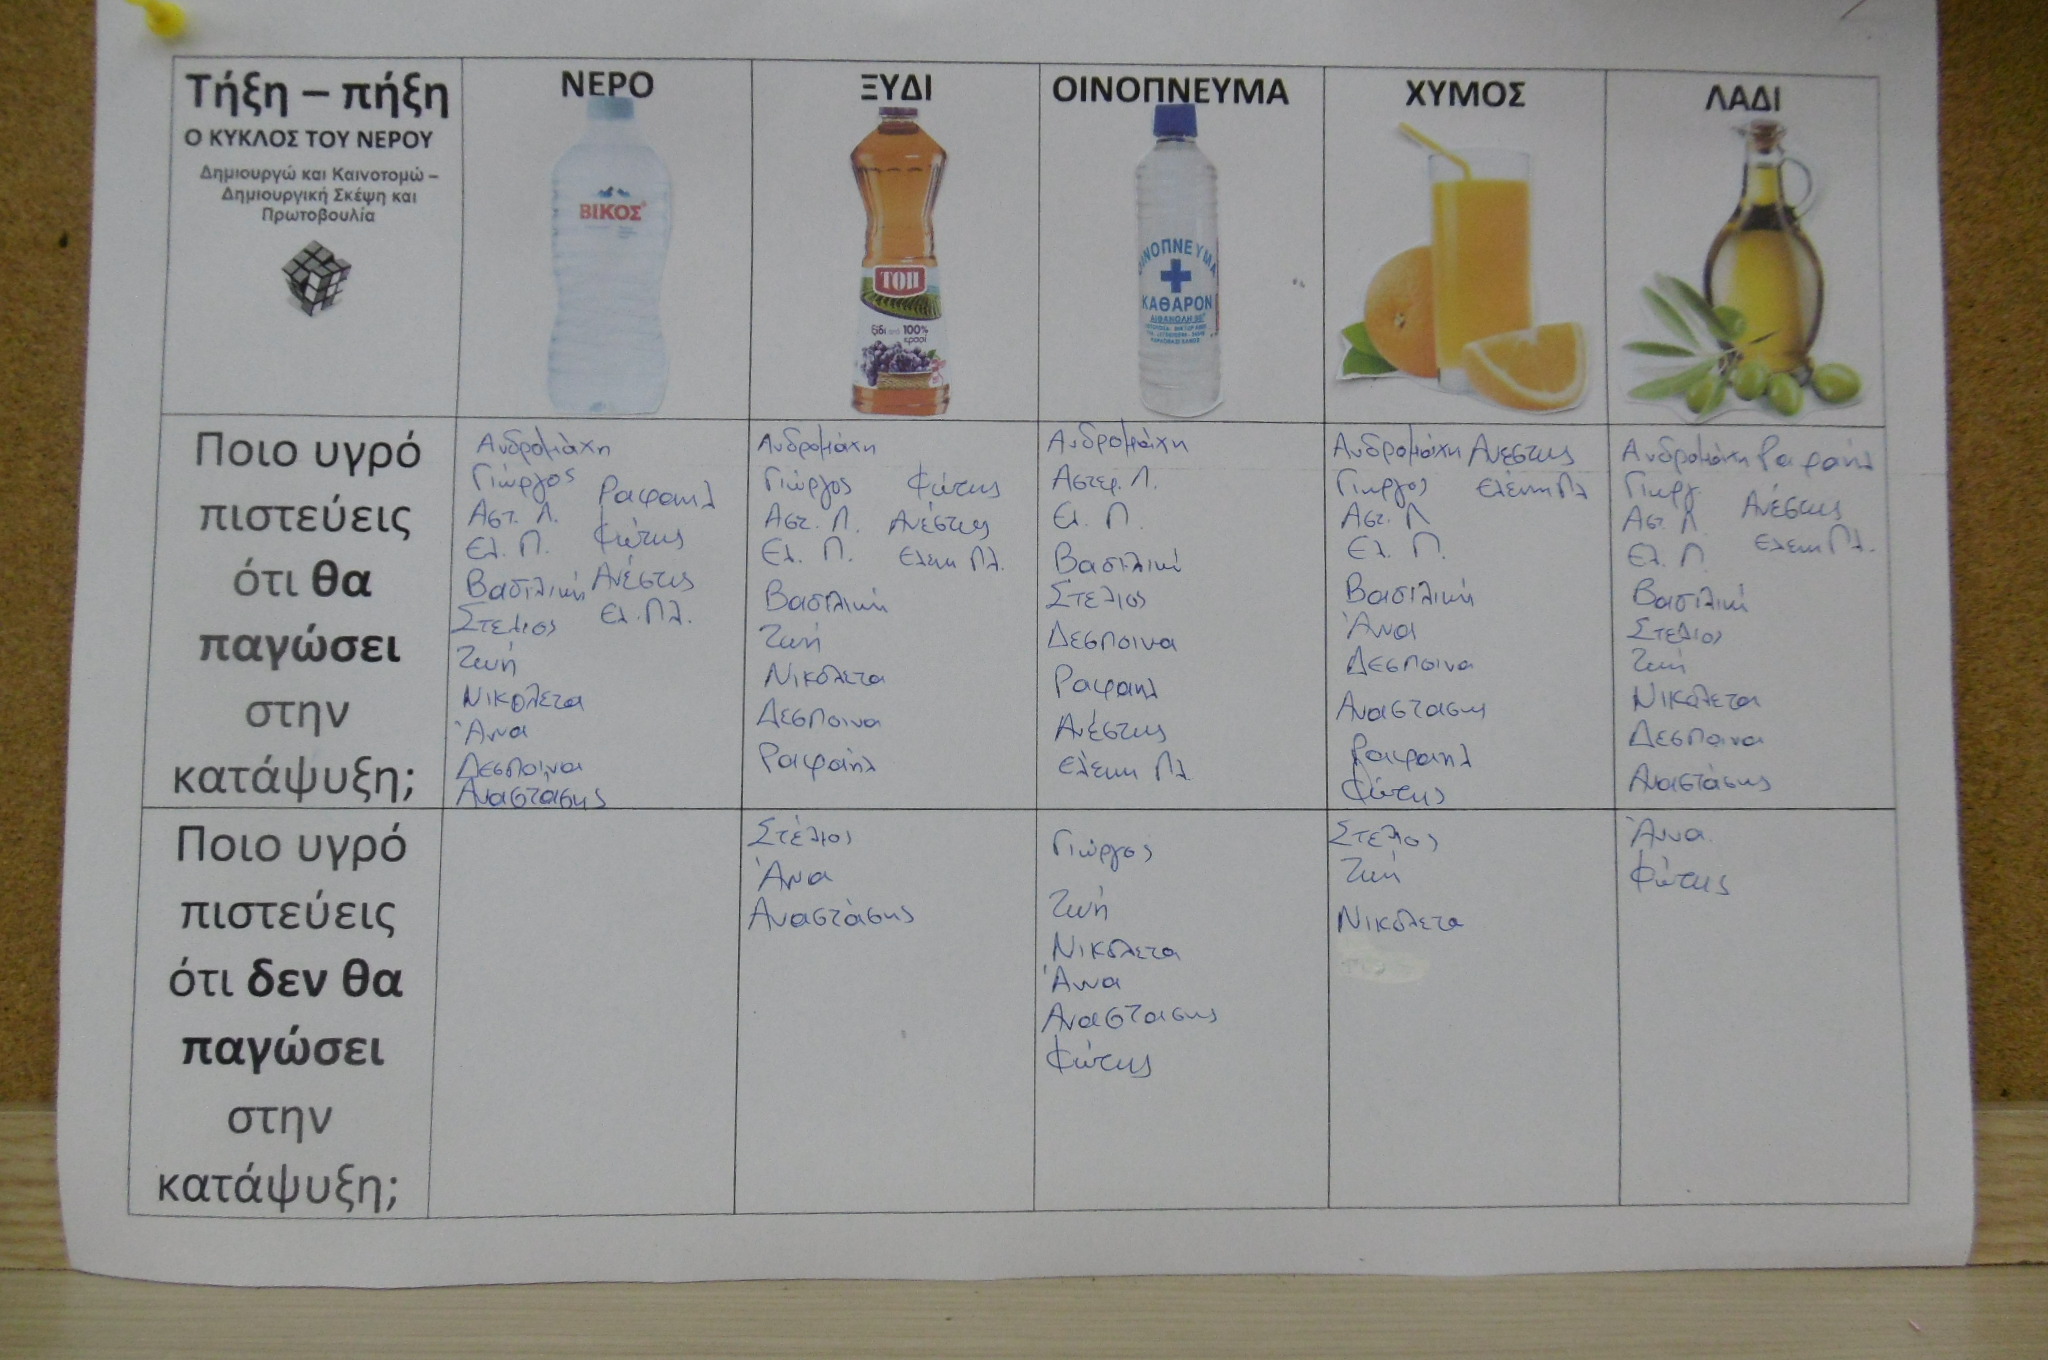 Τήξη – πήξη
Ο ΚΥΚΛΟΣ ΤΟΥ ΝΕΡΟΥ
Δημιουργώ και Καινοτομώ –
Δημιουργική Σκέψη και
Πρωτοβουλία
ΝΕΡΟ
ΒΙΚΟΣ
ΞΥΔΙ
ΤΟΠ
ξίδι από 100%
κρασί
ΟΙΝΟΠΝΕΥΜΑ
ΟΙΝΟΠΝΕΥΜΑ
ΚΑΘΑΡΟΝ
ΧΥΜΟΣ
ΛΑΔΙ
Ποιο υγρό
πιστεύεις
ότι θα
παγώσει
στην
κατάψυξη;
Ανδρομάχη
Γιώργος Ραφαηλ
Αστ. Λ. Φώτης
Ελ. Π.
Βασιλική Ανέστης
Στελιος Ελ. Πλ.
Ζωή
Νικόλετα
Άννα
Δεσποινα
Αναστάσης
Ανδρομάχη
Γιώργος Φώτης
Αστ. Λ. Ανέστης
Ελ. Π. Ελενη Πλ.
Βασιλική
Ζωή
Νικόλετα
Δεσποινα
Ραφαήλ
Ανδρομάχη
Αστερ. Λ.
Ελ. Π.
Βασιλική
Στελιος
Δεσποινα
Ραφαηλ
Ανέστης
Ελενη Πλ
Ανδρομάχη Ανεστης
Γιωργος Ελενη Πλ
Αστ. Λ
Ελ. Π.
Βασιλική
Άννα
Δεσποινα
Αναστασης
Ραφαηλ
Φώτης
Ανδρομάχη Ραφαήλ
Γιωργ. Ανέστης
Αστ. Λ. Ελενη Πλ.
Ελ. Π.
Βασιλική
Στελιος
Ζωή
Νικόλετα
Δεσποινα
Αναστάσης
Ποιο υγρό
πιστεύεις
ότι δεν θα
παγώσει
στην
κατάψυξη;
Στέλιος
Άννα
Αναστάσης
Γιώργος
Ζωή
Νικόλετα
Άννα
Αναστασης
Φώτης
Στελιος
Ζωή
Νικόλετα
Άννα
Φώτης